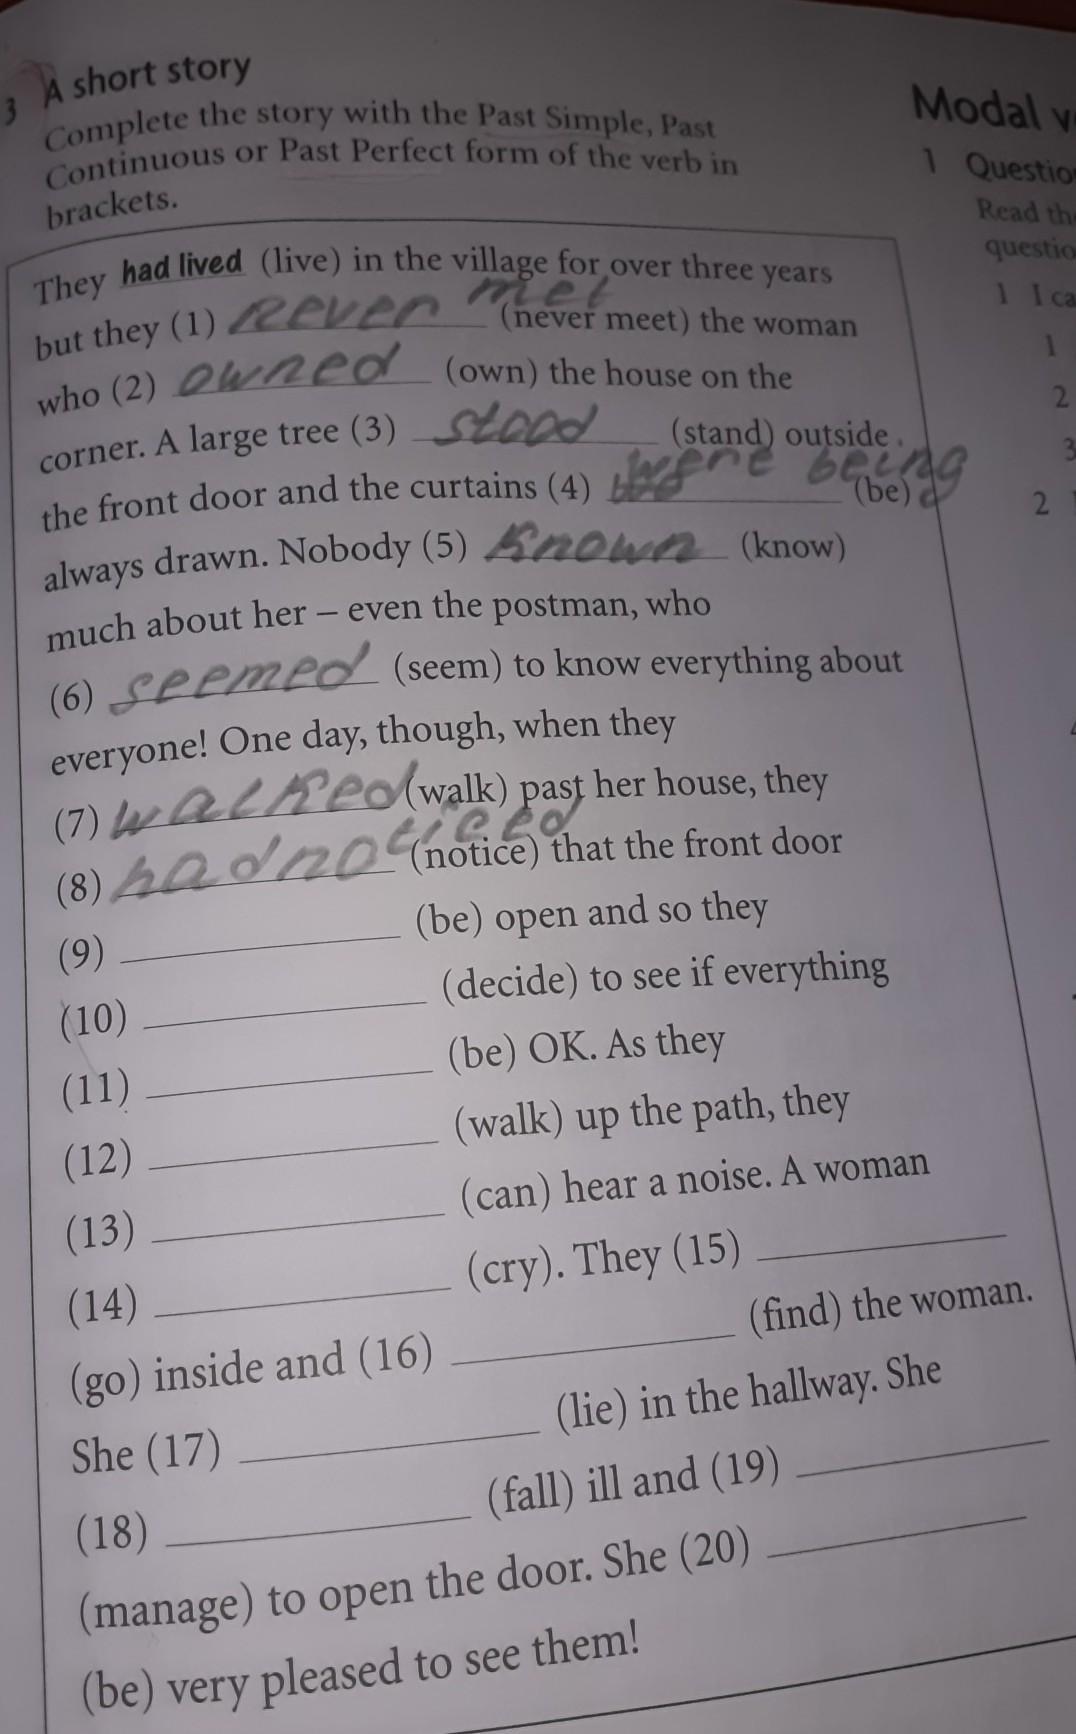 3 A short story
Complete the story with the Past Simple, Past
Continuous or Past Perfect form of the verb in
brackets.
They had lived (live) in the village for over three years
but they (1) never met (never meet) the woman
who (2) owned (own) the house on the
corner. A large tree (3) stood (stand) outside
the front door and the curtains (4) were being (be)
always drawn. Nobody (5) known (know)
much about her – even the postman, who
(6) seemed (seem) to know everything about
everyone! One day, though, when they
(7) walked (walk) past her house, they
(8) had noticed (notice) that the front door
(9) (be) open and so they
(10) (decide) to see if everything
(11) (be) OK. As they
(12) (walk) up the path, they
(13) (can) hear a noise. A woman
(14) (cry). They (15)
(go) inside and (16) (find) the woman.
She (17) (lie) in the hallway. She
(18) (fall) ill and (19)
(manage) to open the door. She (20)
(be) very pleased to see them!
Modal
1
Read
1 I
1
2
3
2